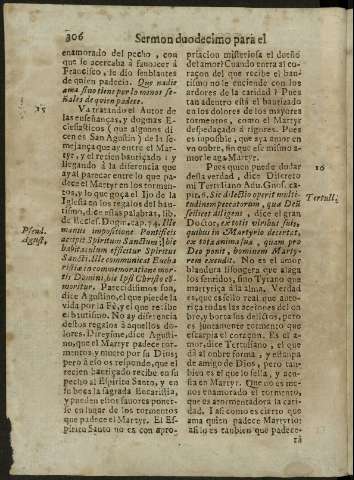 306 Sermon duodecimo para el
enamorado del pecho, con
que se acercaba à favorecer à
Francisco, le dió semblantes
de quien padecia. Que nadie
ama sino tiene por lo menos se-
ñales de quien padece.
15
Va tratando el Autor de
las enseñanças, y dogmas E-
clesiasticos (que algunos di-
cen es San Agustin) de la se-
mejança que ay entre el Mar-
tyr, y el recien bautiçado; y
llegando à la diferencia que
ay al parecer entre lo que pa-
dece el Martyr en los tormen-
tos, y lo que goça el Ijo de la
Iglesia en los regalos del bau-
tismo, dice estas palabras, lib.
de Eccles. Dogm. cap. 74. Ille
Pseud.
August.
manus impositione Pontificis
accipit Spiritum Sanctum; hic
habitaculum efficitur Spiritus
Sancti. Ille communicat Eucha
ristiæ in commemoratione mor-
tis Domini, hic ipsi Christo co-
moritur. Parecidissimos son,
dice Agustino, el que pierde la
vida por la Fè, y el que recibe
el bautismo. No ay diferencia
destos regalos à aquellos do-
lores. Direysme, dice Agusti-
no, que el Martyr padece tor-
mentos y muere por su Dios;
pero à esso os responde, que el
recien bautiçado recibe en su
pecho al Espiritu Santo, y en
su boca la sagrada Eucaristia,
y pueden estos favores poner-
se en lugar de los tormentos
que padece el Martyr. El Es-
piritu Santo no es con apro-
priacion misteriosa el dueño
del amor? Cuando entra al cu-
raçon del que recibe el bau-
tismo no le enciende con los
ardores de la caridad? Pues
tan adentro està el bautizado
en los dolores de los mayores
tormentos, como el Martyr
despedaçado à rigures. Pues
es inposible, que aya amor en
un onbre, sin que ese mismo a-
mor le aga Martyr.
16
Pues quien puede dudar
desta verdad, dice Discreto
mi Tertuliano Adu. Gnos.
Tertulli.
cap. 6. Sic dilectio operit multi-
tudinem peccatorum, quæ Deũ
scilicet diligens, dice el gran
Doctor, ex totis viribus suis,
quibus in Martyrio decertat,
ex tota anima sua, quam pro
Deo ponit, hominem Marty-
rem excudit. No es el amor
blandura lisongera que alaga
los sentidos, sino Tyrano que
martyriça à la alma. Verdad
es, que es sello real que auto-
riça todas las acciones del on
bre, y borra sus delictos, pero
es juntamente tormento que
escarpia el coraçon. Es el a-
mor, dice Tertuliano, el que
dà al onbre forma, y estanpa
de amigo de Dios, pero tan-
bien es el que lo sella, y aco-
sta en Martyr. Que no es me-
nos enamorado el tormento,
que es atormentadora la cari-
dad. I asi como es cierto que
ama quien padece Martyrio:
asi lo es tanbien que padece-
rà